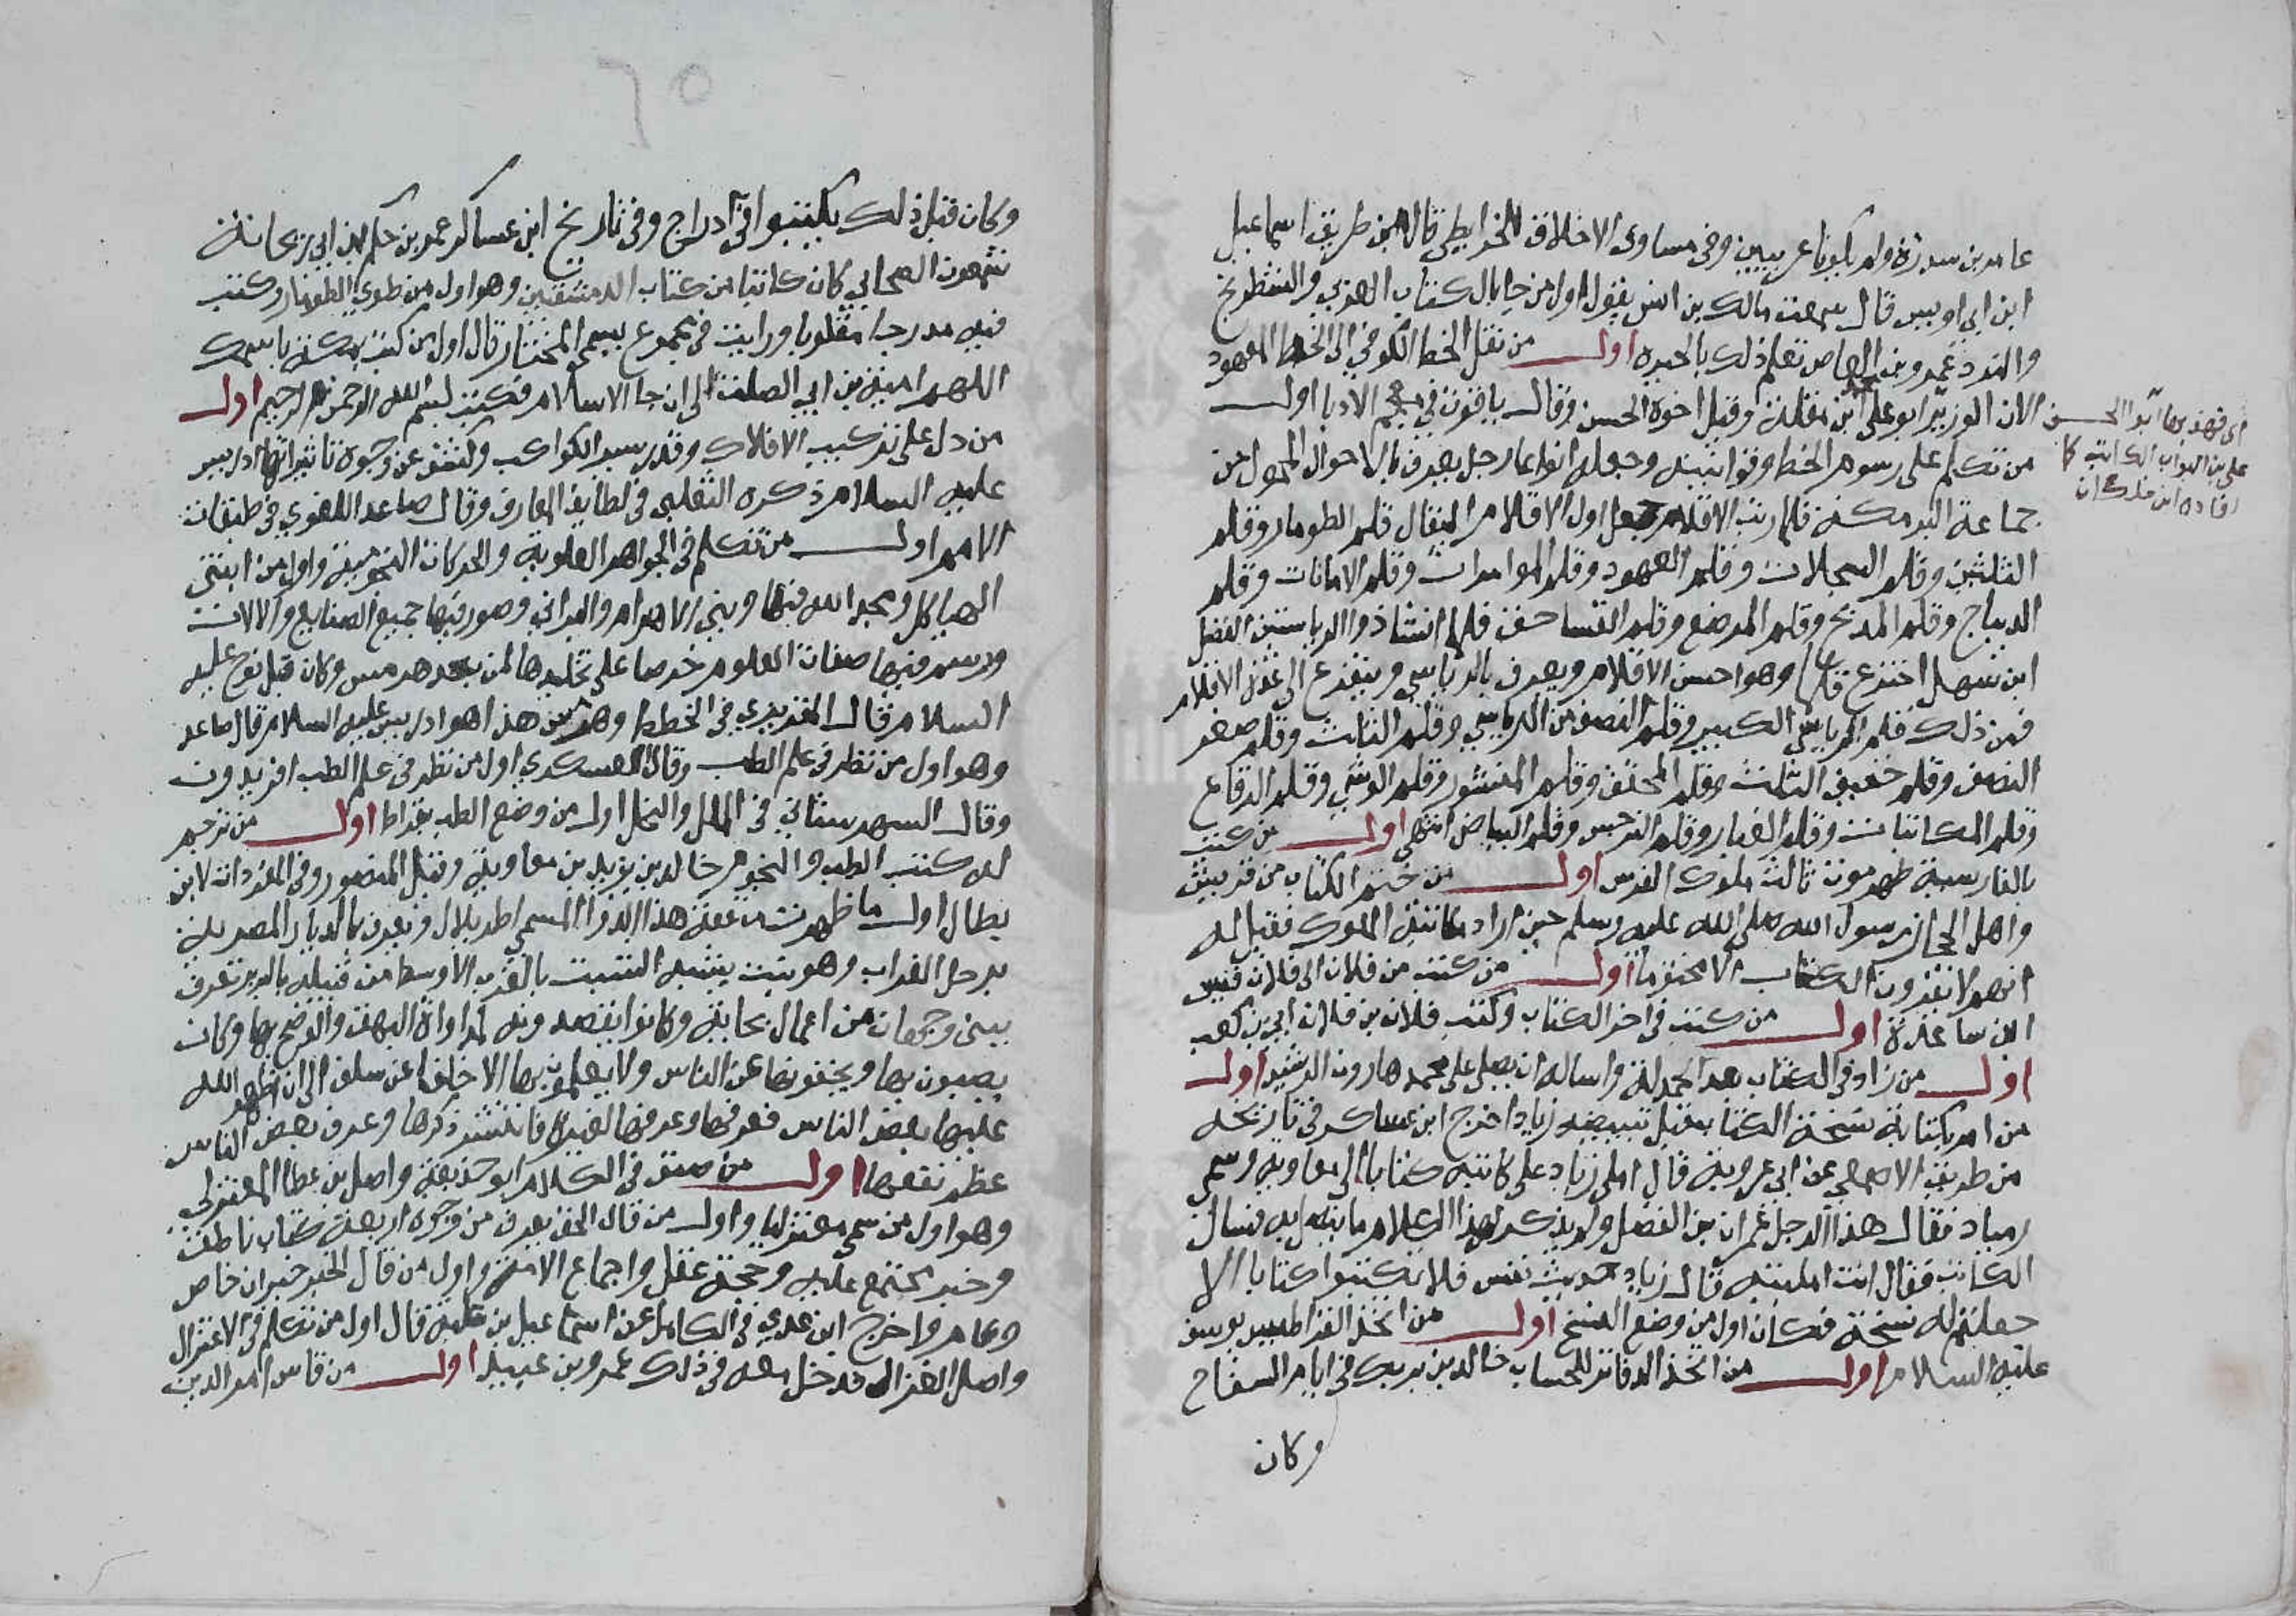 عامر بن سدرة ولم يكونا عربيين وفي مساوى الاخلاق للخرايطي قال من طريق اسماعيل
ابن ابي اويس قال سمعت مالك بن انس يقول اول من جا بالكتاب العربي والشطرنج
والنرد عمرو بن العاص تعلم ذلك بالحيره اول من نقل الخط الكوفي الى الخط المعهود
الان الوزير ابو على ابن مقلة وقيل اخوه الحسن وقال ياقوت في معجم الادبا اول
اى فهذبها ابو الحسن
على بن البواب الكاتب كا
افاده ابن خلكان
من تكلم على رسوم الخط وقوانينه وجعله انواعا رجل يعرف بالاحوال المحول من
جماعة البرمكة فلما رتب الاقلام جعل اول الاقلام الثقال قلم الطومار وقلم
الثلثين وقلم السجلات وقلم العهود وقلم الموامرات وقلم الامانات وقلم
الديباج وقلم المدبج وقلم المرصع وقلم التساحف فلما انشا ذو الرياستين الفضل
ابن سهل اخترع قلما وهو احسن الاقلام ويعرف بالرياسي ويتفرع الى عدة الاقلام
فمن ذلك قلم الرياسي الكبير وقلم النصف من الرياسي وقلم الثلث وقلم صغير
النصف وقلم خفيف الثلث وقلم المحقق وقلم المنشور وقلم الوشي وقلم الرقاع
وقلم المكاتبات وقلم الغبار وقلم النرجس وقلم البياض انتهى اول من كتب
بالفارسية طهمورت ثالث ملوك الفرس اول من ختم الكتاب من قريش
واهل الحجاز رسول الله صلى الله عليه وسلم حين اراد مكاتبة الملوك فقيل له
انهم لا يقرون الكتاب الا مختوما اول من كتب من فلان الى فلان قيس
ابن ساعدة اول من كتب في اخر الكتاب وكتب فلان بن فلان ابي بن كعب
اول من زاد في الكتاب بعد الحمدلة واساله ان يصلى على محمد هارون الرشيد اول
من امر بكتابة نسخة الكتاب قبل تبييضه زياد اخرج ابن عساكر في تاريخه
من طريق الاصمعي عن ابي عروبة قال املى زياد على كاتبه كتابا الى معاوية وسمى
زياد فقال هذا الرجل عمران بن الفضل ولم يذكر لهذا الكلام ما يتصل به فسال
الكاتب فقال انت امليته قال زياد حديث نفس فلا تكتبوا كتابا الا
جعلتم له نسخة فكان اول من وضع النسخ اول من اتخذ القراطيس يوسف
عليه السلام اول من اتخذ الدفاتر للحساب خالد بن برمك في ايام السفاح
وكان
٦٥
وكان قبل ذلك يكتبوا في ادراج وفي تاريخ ابن عساكر عمرو بن حكم بن ابي ريحانة
شمعون الصحابي كان كاتبا من كتاب الدمشقيين وهو اول من طوى الطومار وكتب
فيه مدرجا مقلوبا ورايت في مجموع يسمى المختار قال اول من كتب بمكة باسمك
اللهم امية بن ابي الصلت الى ان جا الاسلام فكتب بسم الله الرحمن الرحيم اول
من دل على تركيب الافلاك وقدر سير الكواكب وكشف عن وجوه تاثيراتها ادريس
عليه السلام ذكره الثعلبي في لطايف المعارف وقال صاعد اللغوي في طبقات
الامم اول من تكلم في الجواهر العلوية والحركات النجومية واول من ابتنى
الهياكل ومجد الله فيها وبنى الاهرام والبرابي وصور فيها جميع الصنايع والالات
ورسم فيها صفات العلوم حرصا على تخليدها لمن بعده هرمس وكان قبل نوح عليه
السلام قال المقريزي في الخطط وهرمس هذا هو ادريس عليه السلام قال صاعد
وهو اول من نظر في علم الطب وقال العسكري اول من نظر في علم الطب افريدون
وقال السهرستاني في الملل والنحل اول من وضع الطب بقراط اول من ترجم
له كتب الطب والنجوم خالد بن يزيد بن معاوية وقيل المنصور وفي المفردات لابن
بطال اول ما ظهرت منفعة هذا الدوا المسمى اطريلال ويعرف بالديار المصرية
برجل الغراب وهو نبت يشبه الشبت بالغرب الاوسط من قبيلة بالبربر تعرف
ببني وجهان من اعمال بجاية وكانوا يقصدونه لمداواة البهق والوضح بها وكان
يصبون بها ويخفونها عن الناس ولا يعلمون بها الا خلفا عن سلف الى ان اظهر الله
عليها بعض الناس فعرفها وعرفها لغيره فانتشر ذكرها وعرف بعض الناس
عظم نفعها اول من صنف في الكلام ابو حذيفة واصل بن عطا المعتزلي
وهو اول من سمى معتزليا واول من قال الحق يعرف من وجوه اربعة كتاب ناطق
وخبر مجتمع عليه وحجة عقل واجماع الامة واول من قال الخبر خبران خاص
وعام واخرج ابن عدي في الكامل عن اسماعيل بن علية قال اول من تكلم في الاعتزال
واصل الغزال فدخل معه في ذلك عمرو بن عبيد اول من قاس امر الدين